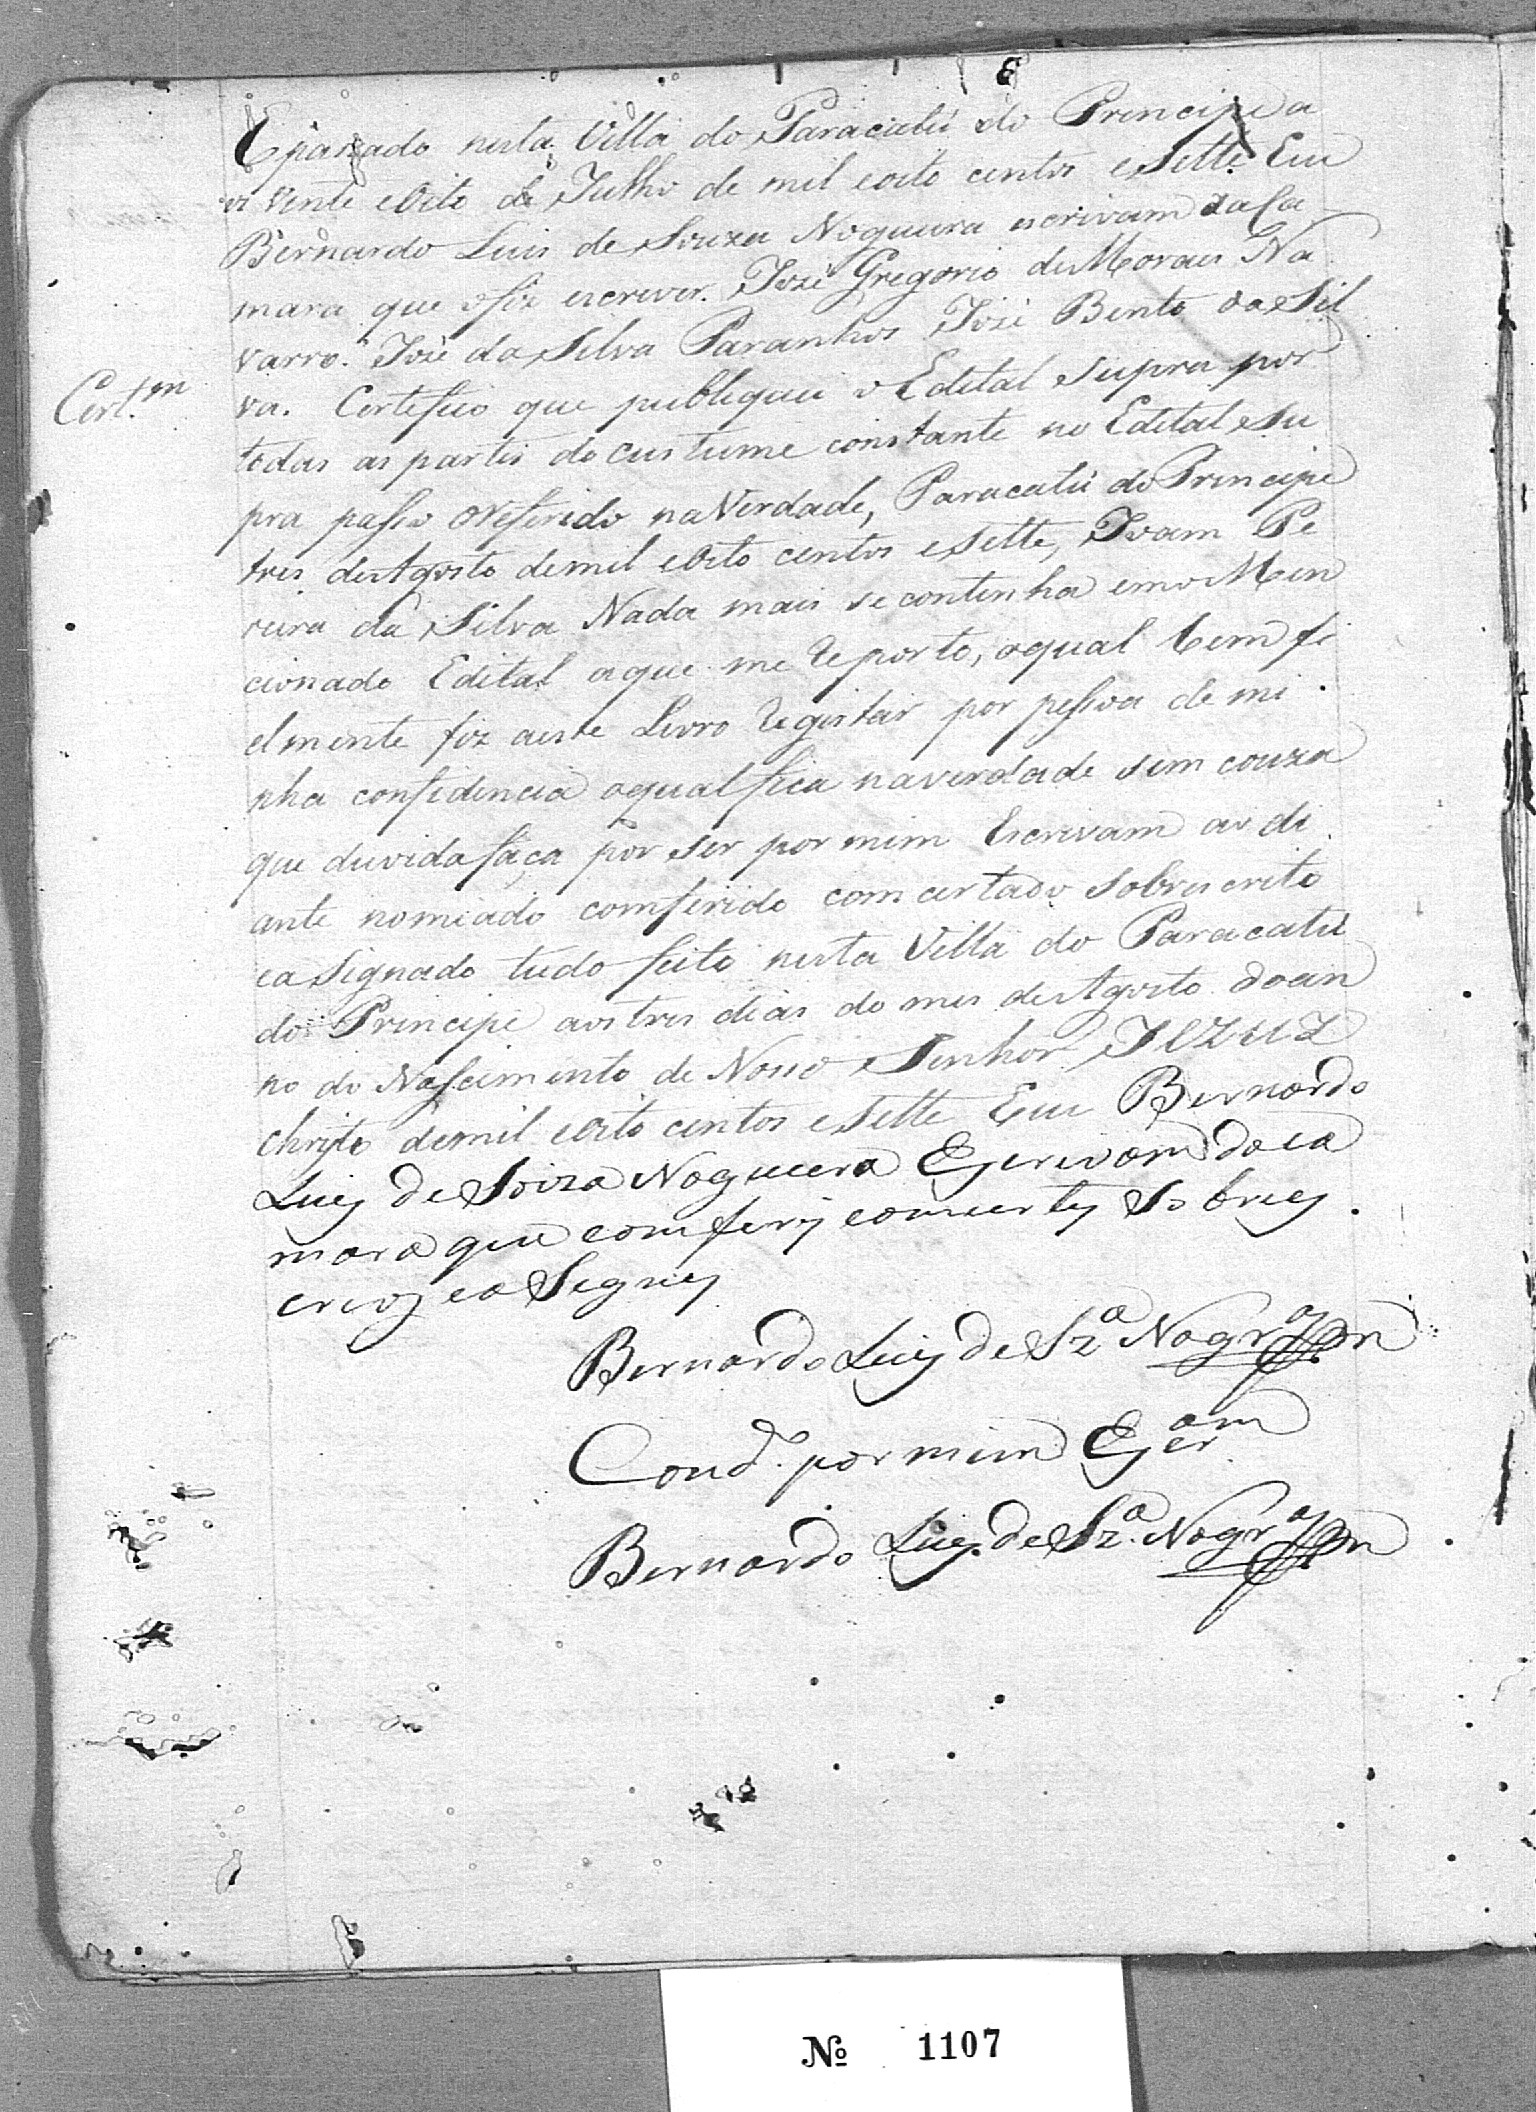 E pasado nesta Villa do Paracatú do Principe a
os Vente e Oito de Julho de mil e oito centos e Sette Eu
Bernardo Luis de Souza Nogueira escrivam da Ca
mara que o fiz escrever. Jozé Gregorio de Moraes Na
varro. Joze da Silva Paranhos Jozé Bento da Sil
Cert.am
va. Certefico que publiquei o Edital Supra por
todas as partes do custume constante no Edital Su
pra passo o Referido na Verdade, Paracatú do Principe
tres de Agosto de mil e Oito centos e Sette, Joam Pe
reira da Silva Nada mais se continha em o Men
cionado Edital a que me Reporto, o qual bem fi
elmente fiz a este Livro Registar por pessoa de mi
nha confidencia o qual fica na verdade sem couza
que duvida faça por ser por mim Escrivam ao di
ante nomiado comferido comcertado sobrescrito
e aSignado tudo feito nesta Villa do Paracatú
do Principe aos tres dias do mes de Agosto do an
no do Nascimento de Nosso Senhor JEZUZ
Christo de mil e Oito centos e Sette Eu Bernardo
Luis de Soiza Nogueira Escrivam da ca
mara que comfery comcertey Sobrey
crevy e aSigney
Bernardo Luis de Sz.a Nogr.a
Cond.o por mim Escr.am
Bernardo Luis de Sz.a Nogr.a
№ 1107